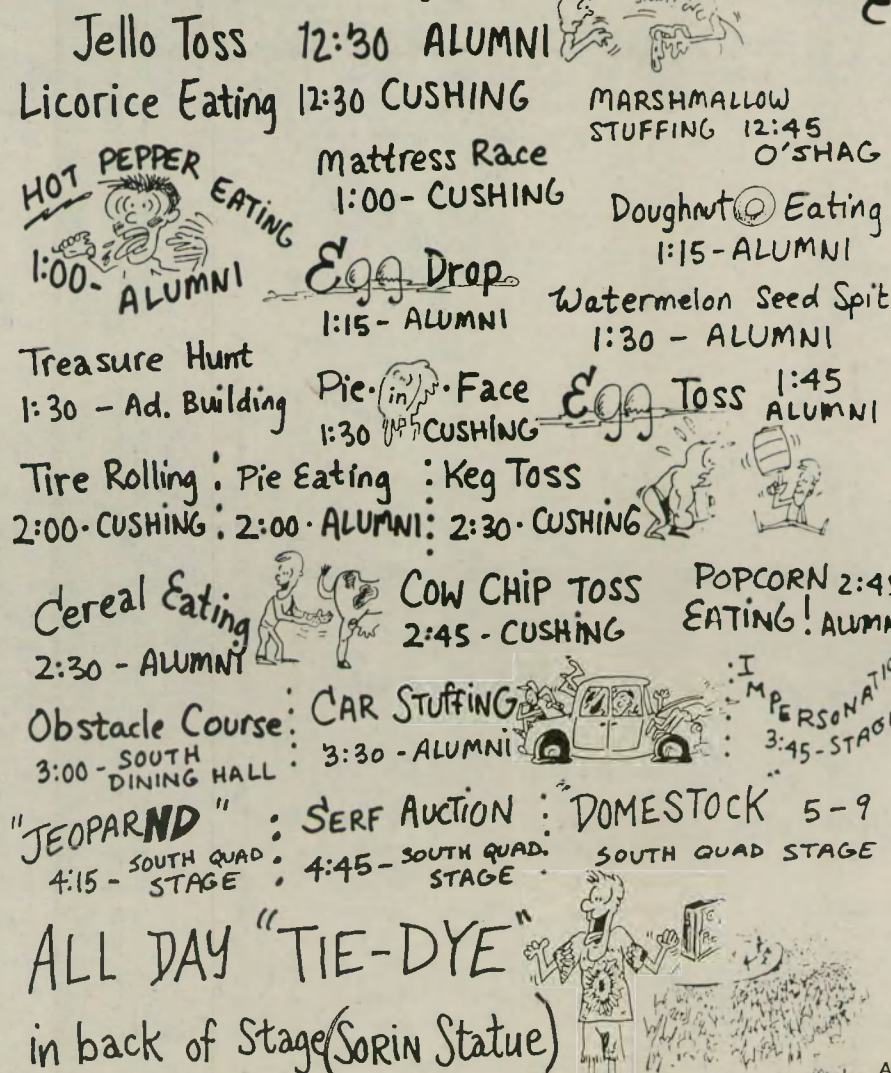 Jello Toss 12:30 ALUMNI
Licorice Eating 12:30 CUSHING
MARSHMALLOW
STUFFING 12:45
O'SHAG
HOT PEPPER EATING
1:00- ALUMNI
Mattress Race
1:00- CUSHING
Doughnut Eating
1:15-ALUMNI
Egg Drop
1:15- ALUMNI
Watermelon Seed Spit
1:30 - ALUMNI
Treasure Hunt
1:30 - Ad. Building
Pie·in·Face
1:30 CUSHING
Egg Toss 1:45
ALUMNI
Tire Rolling
2:00· CUSHING
Pie Eating
2:00· ALUMNI
Keg Toss
2:30· CUSHING
Cereal Eating
2:30 - ALUMNI
COW CHIP TOSS
2:45 - CUSHING
POPCORN 2:45
EATING! ALUMN
Obstacle Course
3:00 - SOUTH
DINING HALL
CAR STUFFING
3:30 - ALUMNI
IMPERSONATIO
3:45-STAG
"JEOPARND"
4:15 - SOUTH QUAD
STAGE
SERF AUCTION
4:45 - SOUTH QUAD.
STAGE
"DOMESTOCK" 5-9
SOUTH QUAD STAGE
ALL DAY "TIE-DYE"
in back of Stage (SORIN Statue)